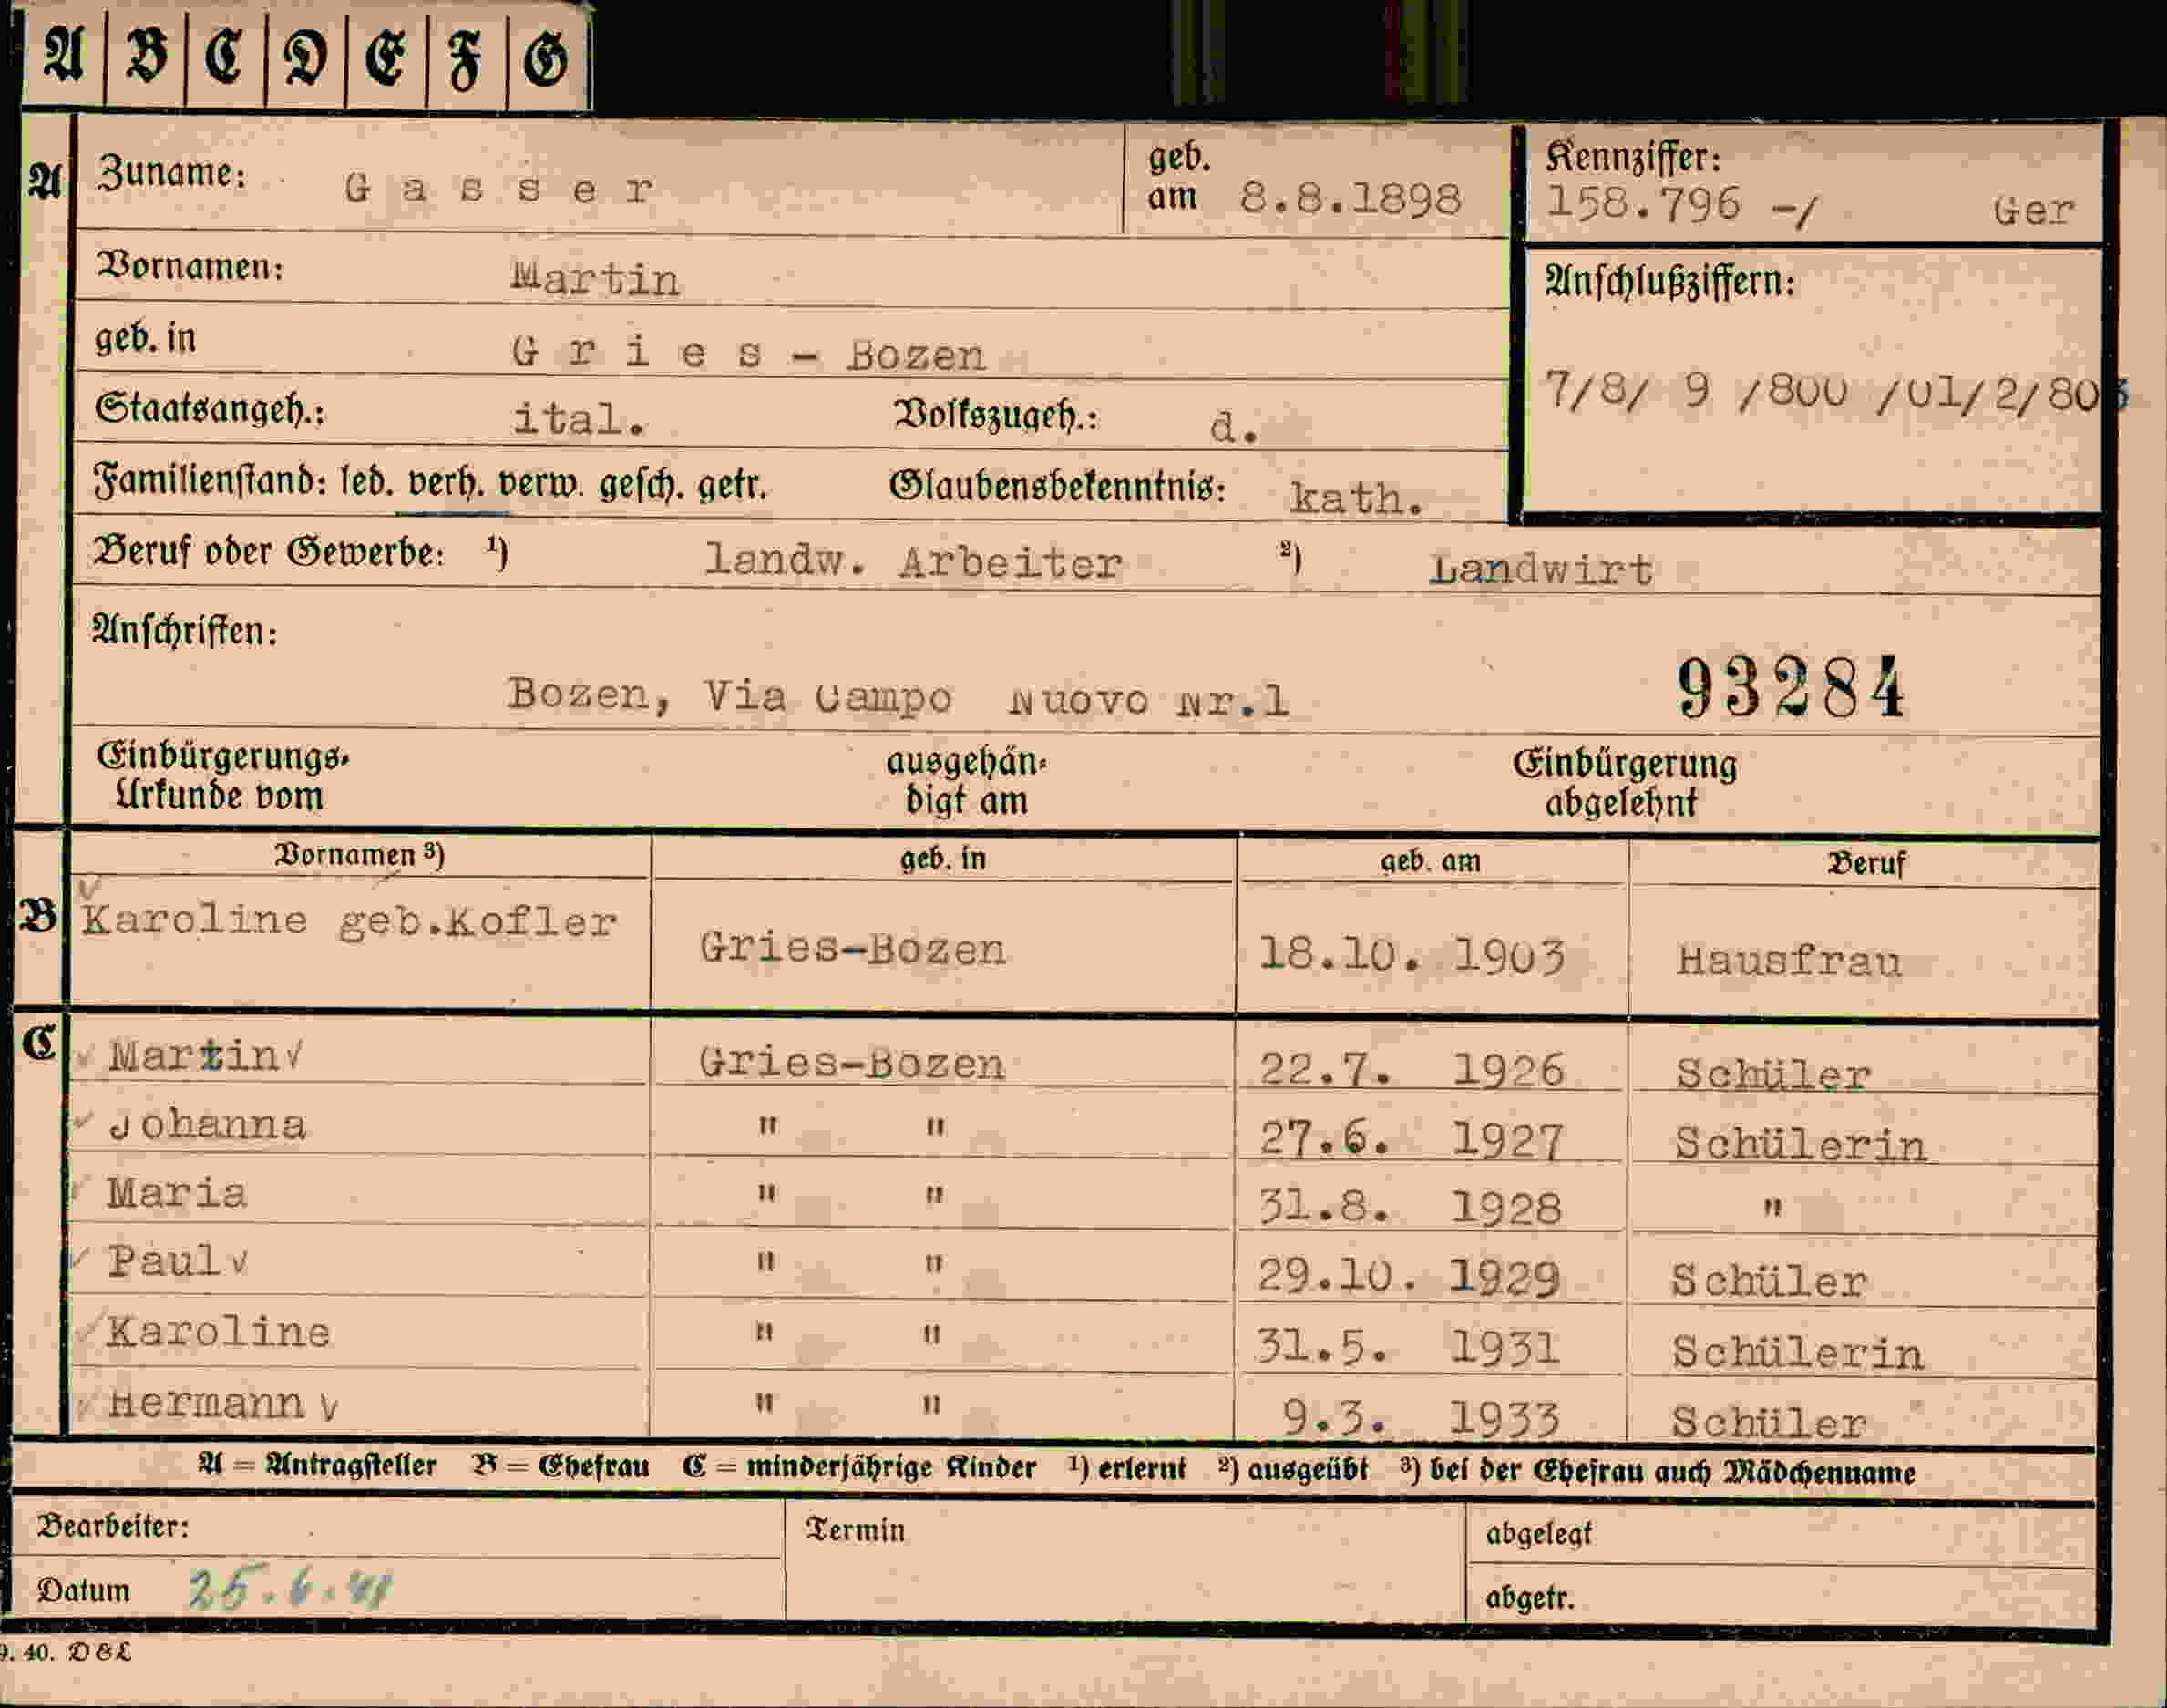 A B C D E F G
A Zuname: Gasser geb. am 8.8.1898 Kennziffer: 158.796 -/ Ger
Vornamen: Martin Anschlußziffern:
geb. in Gries - Bozen
7/8/ 9 /800 /01/2/803
Staatsangeh.: ital. Volkszugeh.: d.
Familienstand: led. verh. verw. gesch. getr. Glaubensbekenntnis: kath.
Beruf oder Gewerbe: 1) landw. Arbeiter 2) Landwirt
Anschriften:
Bozen, Via Campo Nuovo Nr.1 93284
Einbürgerungs- ausgehän- Einbürgerung
Urkunde vom digt am abgelehnt
Vornamen 3) geb. in geb. am Beruf
B Karoline geb.Kofler Gries-Bozen 18.10. 1903 Hausfrau
C Martin Gries-Bozen 22.7. 1926 Schüler
Johanna " " 27.6. 1927 Schülerin
Maria " " 31.8. 1928 "
Paul " " 29.10. 1929 Schüler
Karoline " " 31.5. 1931 Schülerin
Hermann " " 9.3. 1933 Schüler
A = Antragsteller B = Ehefrau C = minderjährige Kinder 1) erlernt 2) ausgeübt 3) bei der Ehefrau auch Mädchenname
Bearbeiter: Termin abgelegt
Datum 25.6.41 abgetr.
9. 40. D&L